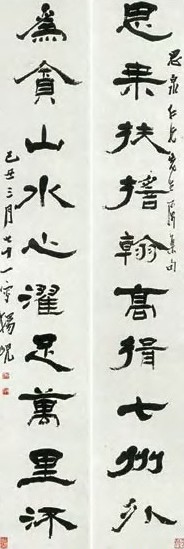 思乘扶搖翰高揖七州外
思泉仁兄屬集句
為貪山水心濯足萬里流
己丑三月七十一楊峴